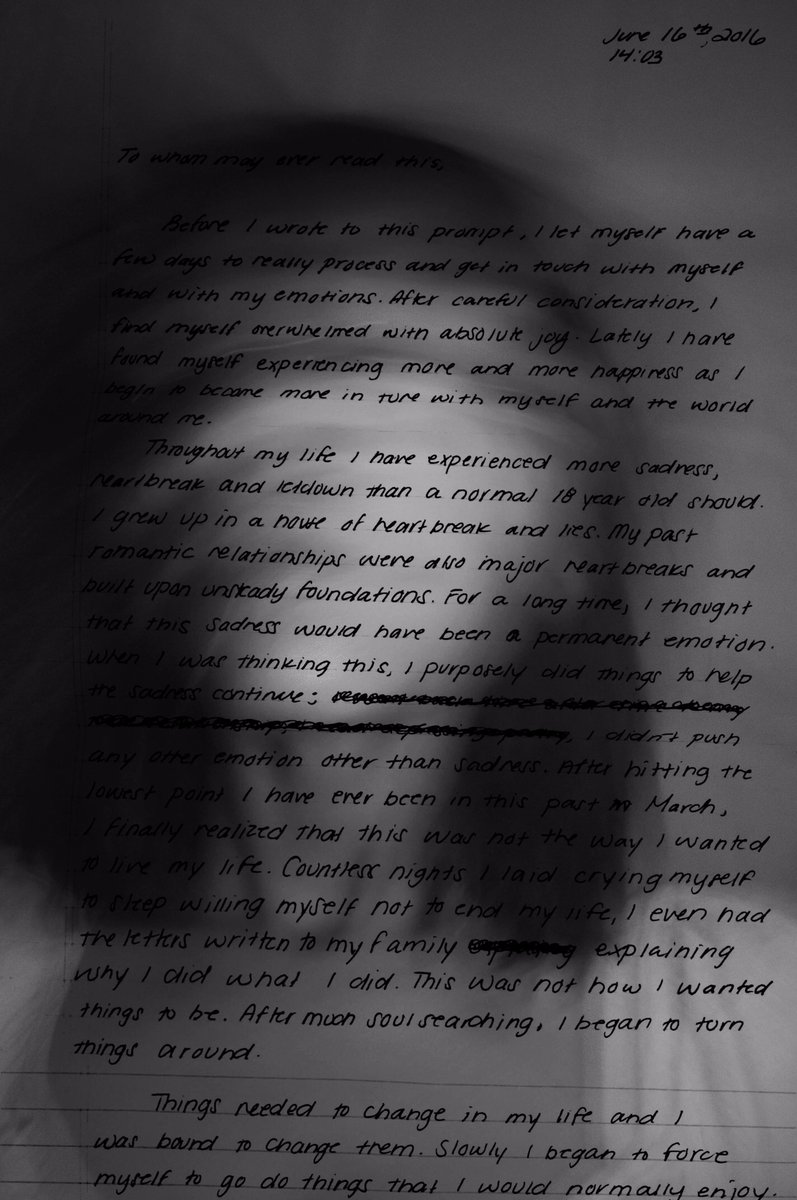 June 16th, 2016
14:03
To whom may ever read this,
Before I wrote to this prompt, I let myself have a
few days to really process and get in touch with myself
and with my emotions. After careful consideration, I
find myself overwhelmed with absolute joy. Lately I have
found myself experiencing more and more happiness as I
begin to become more in tune with myself and the world
around me.
Throughout my life I have experienced more sadness,
heartbreak and letdown than a normal 18 year old should.
I grew up in a home of heartbreak and lies. My past
romantic relationships were also major heartbreaks and
built upon unsteady foundations. For a long time, I thought
that this sadness would have been a permanent emotion.
When I was thinking this, I purposely did things to help
the sadness continue;
, I didn't push
any other emotion other than sadness. After hitting the
lowest point I have ever been in this past March,
I finally realized that this was not the way I wanted
to live my life. Countless nights I laid crying myself
to sleep willing myself not to end my life, I even had
the letters written to my family explaining
why I did what I did. This was not how I wanted
things to be. After much soul searching, I began to turn
things around.
Things needed to change in my life and I
was bound to change them. Slowly I began to force
myself to go do things that I would normally enjoy.